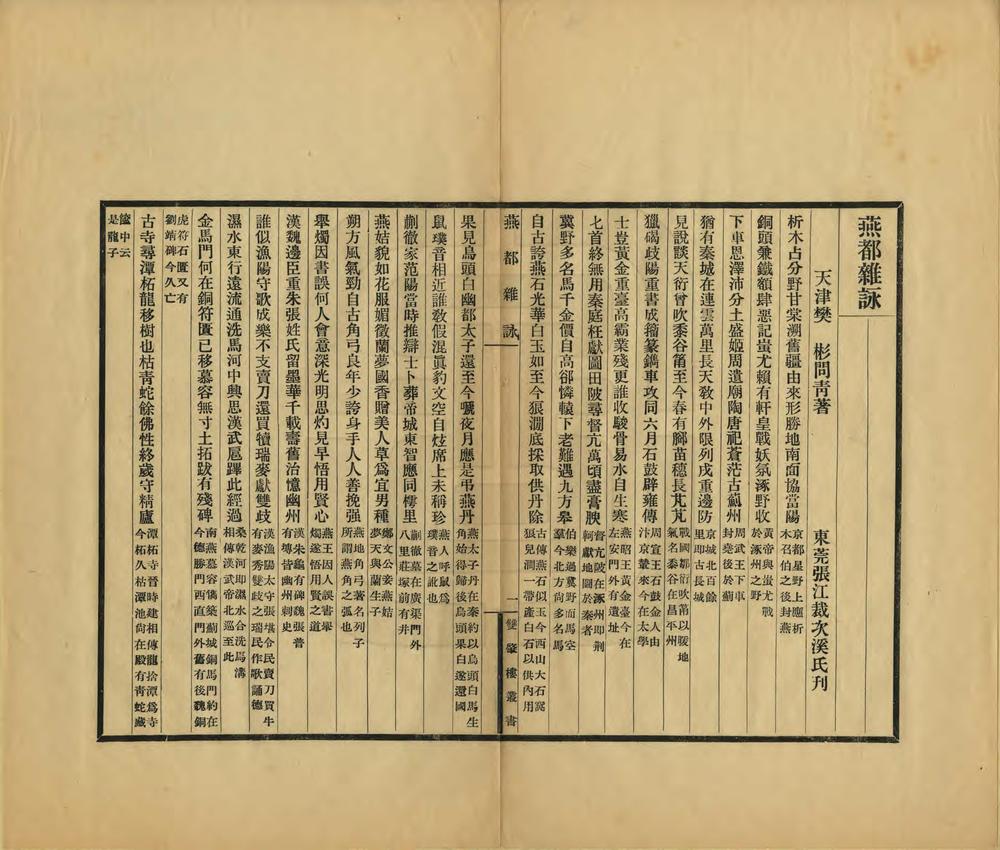 燕都雜詠
天津樊　彬問青著　東莞張江裁次溪氏刊
析木占分野甘棠溯舊疆由來形勝地南面協當陽京都星野上應析木召伯之後封燕
銅頭兼鐵額肆惡記蚩尤賴有軒皇戰妖氛涿野收黃帝與蚩尤戰於涿州之野
下車恩澤沛分土盛姬周遺廟陶唐祀蒼茫古薊州周武王下車封堯後於薊
猶有秦城在連雲萬里長天敎中外限列戍重邊防京城北百餘里即古長城
見說談天衍曾吹黍谷筩至今春有腳苗穗長芃芃戰國鄒衍吹筩以暖地氣名黍谷在昌平州
獵碣歧陽重書成籀篆鐫車攻同六月石鼓辟雍傳周宣王石鼓金人由汴京輦來今在太學
士豈黃金重臺高霸業殘更誰收駿骨易水自生寒燕昭王黃金臺今在左安門外有遺址
匕首終無用秦庭枉獻圖田陂尋督亢萬頃盡膏腴督亢陂在涿州即荆軻獻地圖於秦者
冀野多名馬千金價自高卻憐轅下老難遇九方皋伯樂過冀野而馬空羣今北方尙多名馬
自古誇燕石光華白玉如至今狼澗底採取供丹除古傳燕石似玉今西山大石窩狼兒澗一帶產白石以供內用
燕都雜詠
一
雙肇樓叢書
果見烏頭白幽都太子還至今號夜月應是弔燕丹燕太子丹在秦約以烏頭白馬生角始得歸後烏頭果白遂還國
鼠璞音相近誰敎假混眞豹文空自炫席上未稱珍燕人呼鼠爲璞音之訛也
蒯徹家范陽當時推辯士卜葬帝城東智應同樗里蒯徹墓在廣渠門外八里莊塚前有井
燕姞貌如花服媚徵蘭夢國香贈美人草爲宜男種鄭文公妾燕姞夢天與蘭生子
朔方風氣勁自古角弓良年少誇身手人人善挽强燕地角弓著名列子所謂燕角之弧也
舉燭因書誤何人會意深光明思灼見早悟用賢心燕王因人誤書舉燭遂悟用賢之道
漢魏邊臣重朱張姓氏留墨華千載壽舊治憶幽州漢朱龜有碑魏張普有塼皆幽州刺史
誰似漁陽守歌成樂不支賣刀還買犢瑞麥獻雙歧漢漁陽太守張堪令民賣刀買牛有麥秀雙歧之瑞民作歌誦德
濕水東行遠流通洗馬河中興思漢武扈蹕此經過桑乾河即濕水合洗馬溝相傳漢武帝北巡至此
金馬門何在銅符匱已移慕容無寸土拓跋有殘碑南燕慕容儁築薊城銅馬門約在今德勝門西直門外舊有後魏銅
虎符石匱又有劉靖碑今久亡
古寺尋潭柘龍移樹也枯青蛇餘佛性終歲守精廬潭柘寺晉時建相傳龍捨潭爲寺今柘久枯潭池尙在殿有青蛇藏
篋中云是龍子